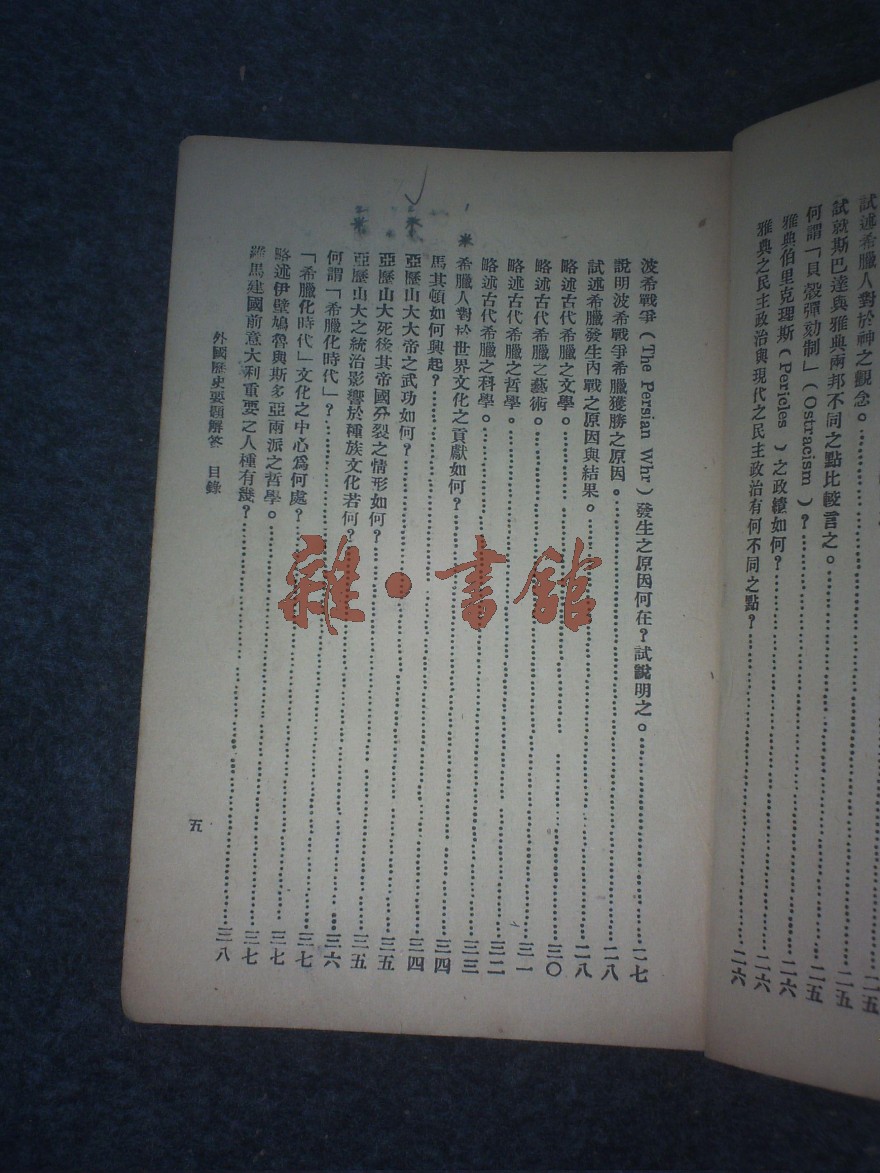 試述希臘人對於神之觀念。……二五
試就斯巴達與雅典兩邦不同之點比較言之。……二五
何謂「貝殼彈劾制」(Ostracism)?……二六
雅典伯里克理斯(Pericles)之政績如何?……二六
雅典之民主政治與現代之民主政治有何不同之點?……二六
波希戰爭(The Persian Whr)發生之原因何在?試說明之。……二七
說明波希戰爭希臘獲勝之原因。……二八
試述希臘發生內戰之原因與結果。……二八
略述古代希臘之文學。……三〇
略述古代希臘之藝術。……三一
略述古代希臘之哲學。……三二
略述古代希臘之科學。……三三
希臘人對於世界文化之貢獻如何?……三四
馬其頓如何興起?……三四
亞歷山大大帝之武功如何?……三五
亞歷山大死後其帝國分裂之情形如何?……三五
亞歷山大之統治影響於種族文化若何?……三六
何謂「希臘化時代」?……三七
「希臘化時代」文化之中心爲何處?……三七
略述伊壁鳩魯與斯多亞兩派之哲學。……三七
羅馬建國前意大利重要之人種有幾?……三八
外國歷史要題解答 目錄
五
雜·書館